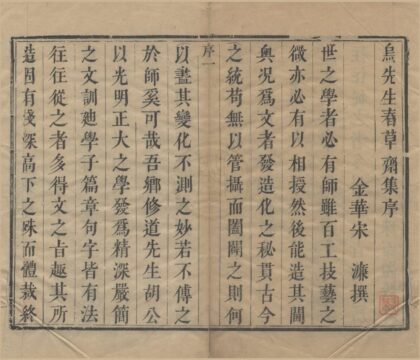 烏先生春草齋集序
金華宋濂撰
世之學者必有師雖百工技藝之
微亦必有以相授然後能造其閫
奧況爲文者發造化之秘貫古今
之統苟無以管攝而闔闢之則何
序一
以盡其變化不測之妙若不傳之
於師奚可哉吾鄉修道先生胡公
以光明正大之學發爲精深嚴簡
之文訓廸學子篇章句字皆有法
往往從之者多得文之旨趣其所
造固有淺深高下之殊而體裁終